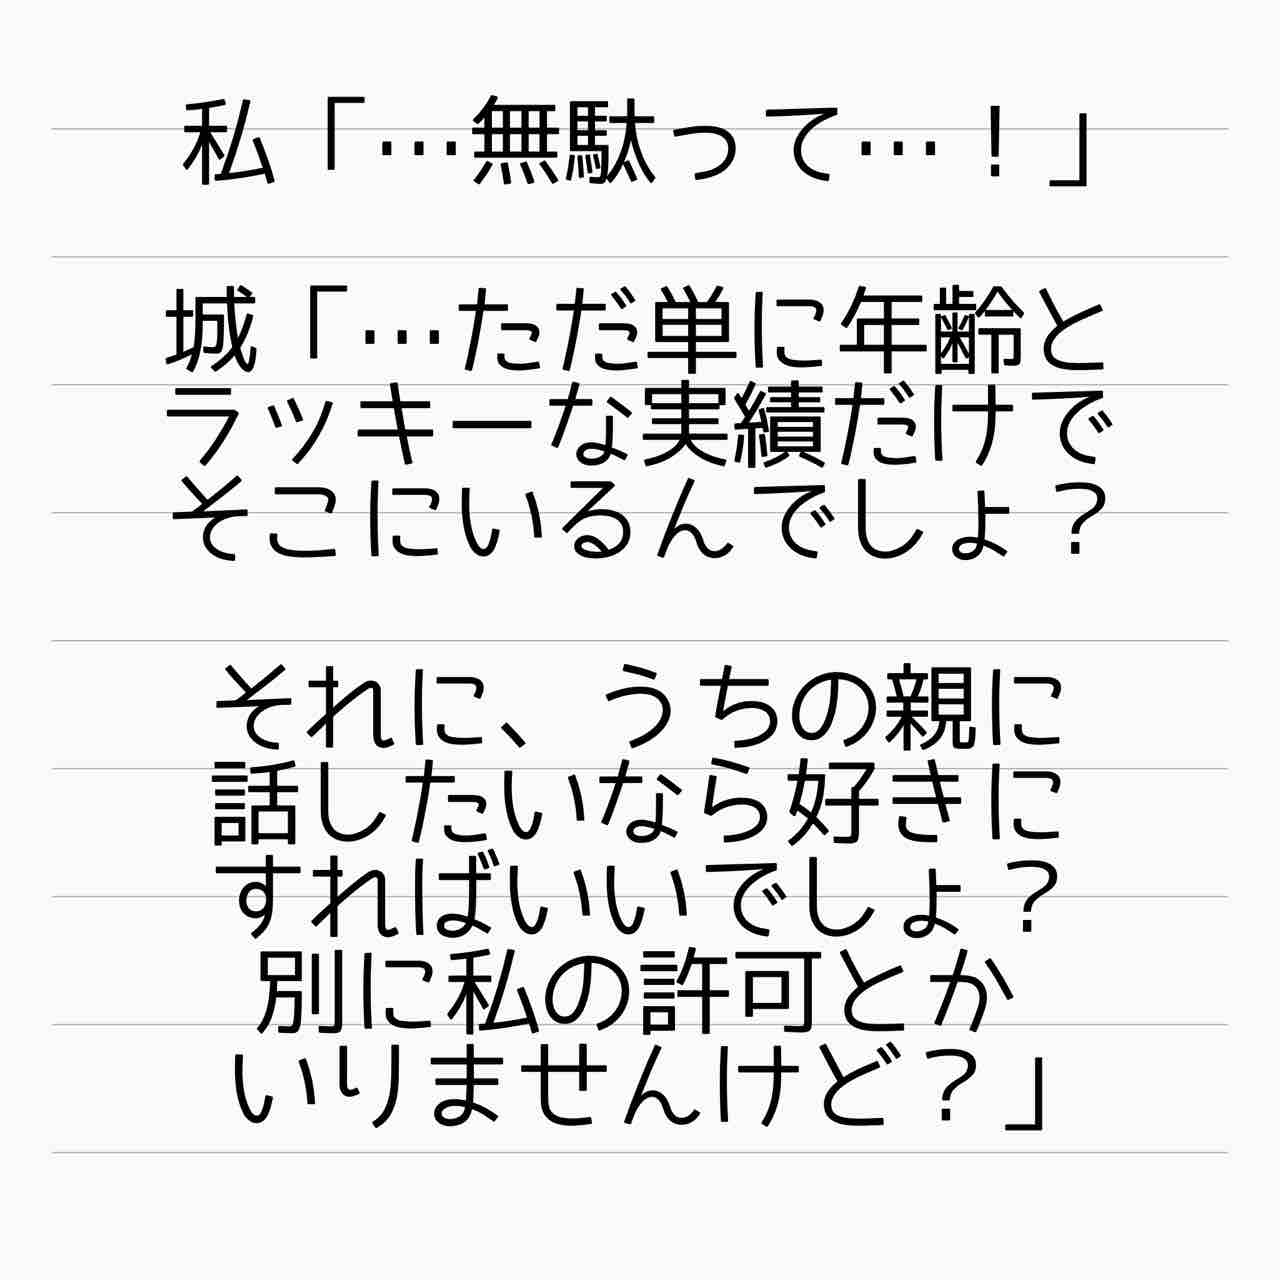 私「…無駄って…！」
城「…ただ単に年齢と
ラッキーな実績だけで
そこにいるんでしょ？
それに、うちの親に
話したいなら好きに
すればいいでしょ？
別に私の許可とか
いりませんけど？」